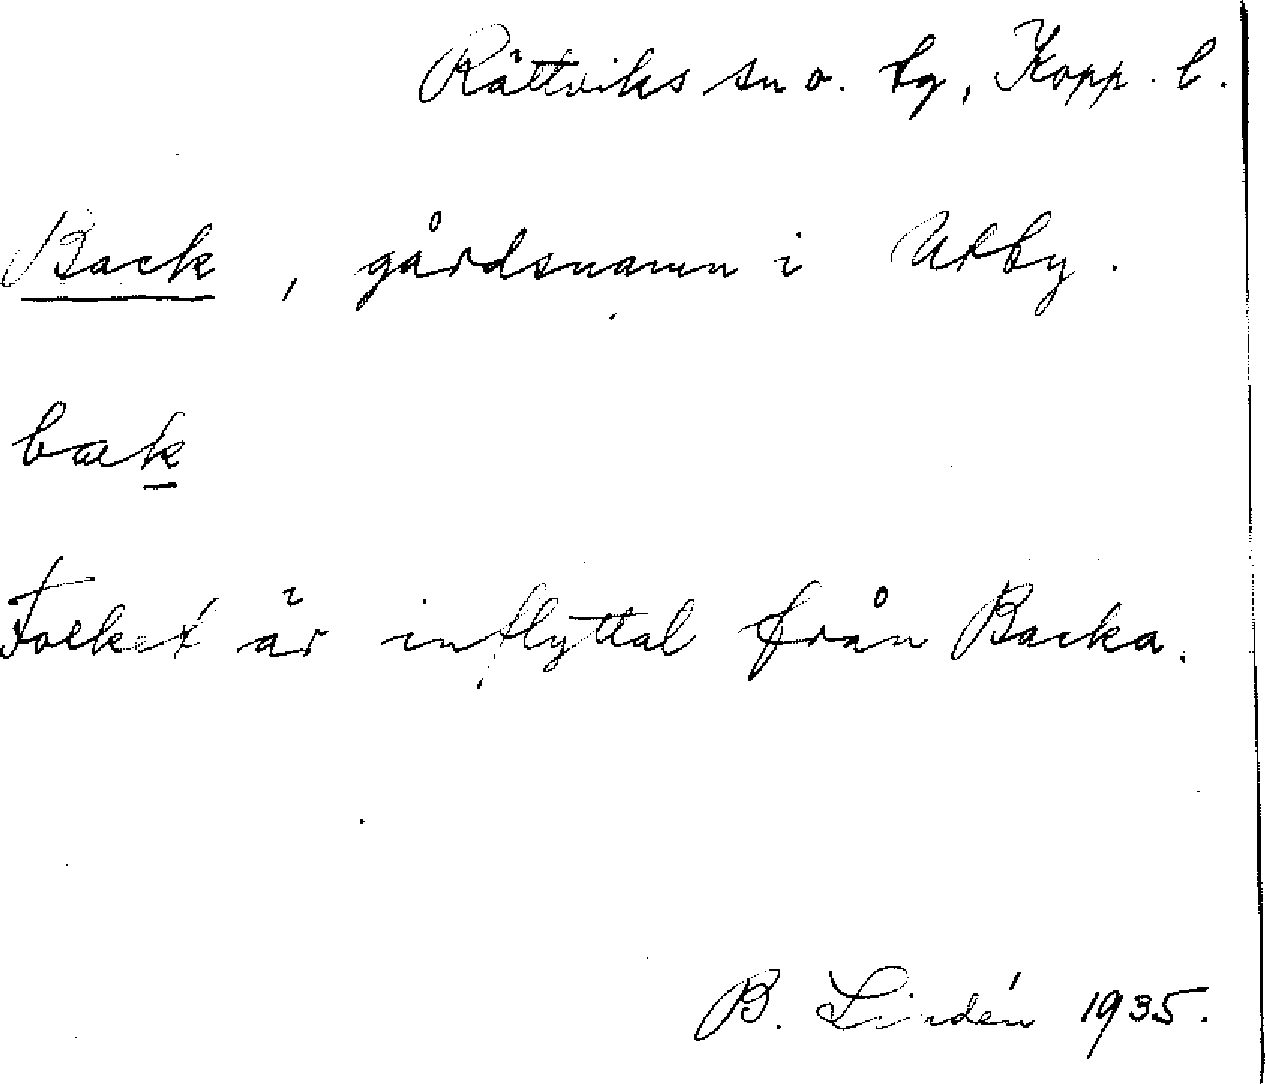 Rättviks sn o. tg, Kopp. l.
Back, gårdsnamn i Utby.
bak
Folket är inflyttat från Backa.
B. Lindén 1935.